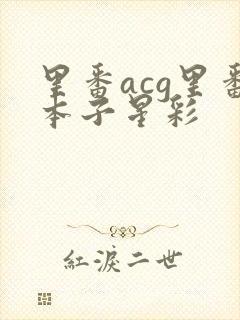 里番acg里番
本子星彩
紅淚二世